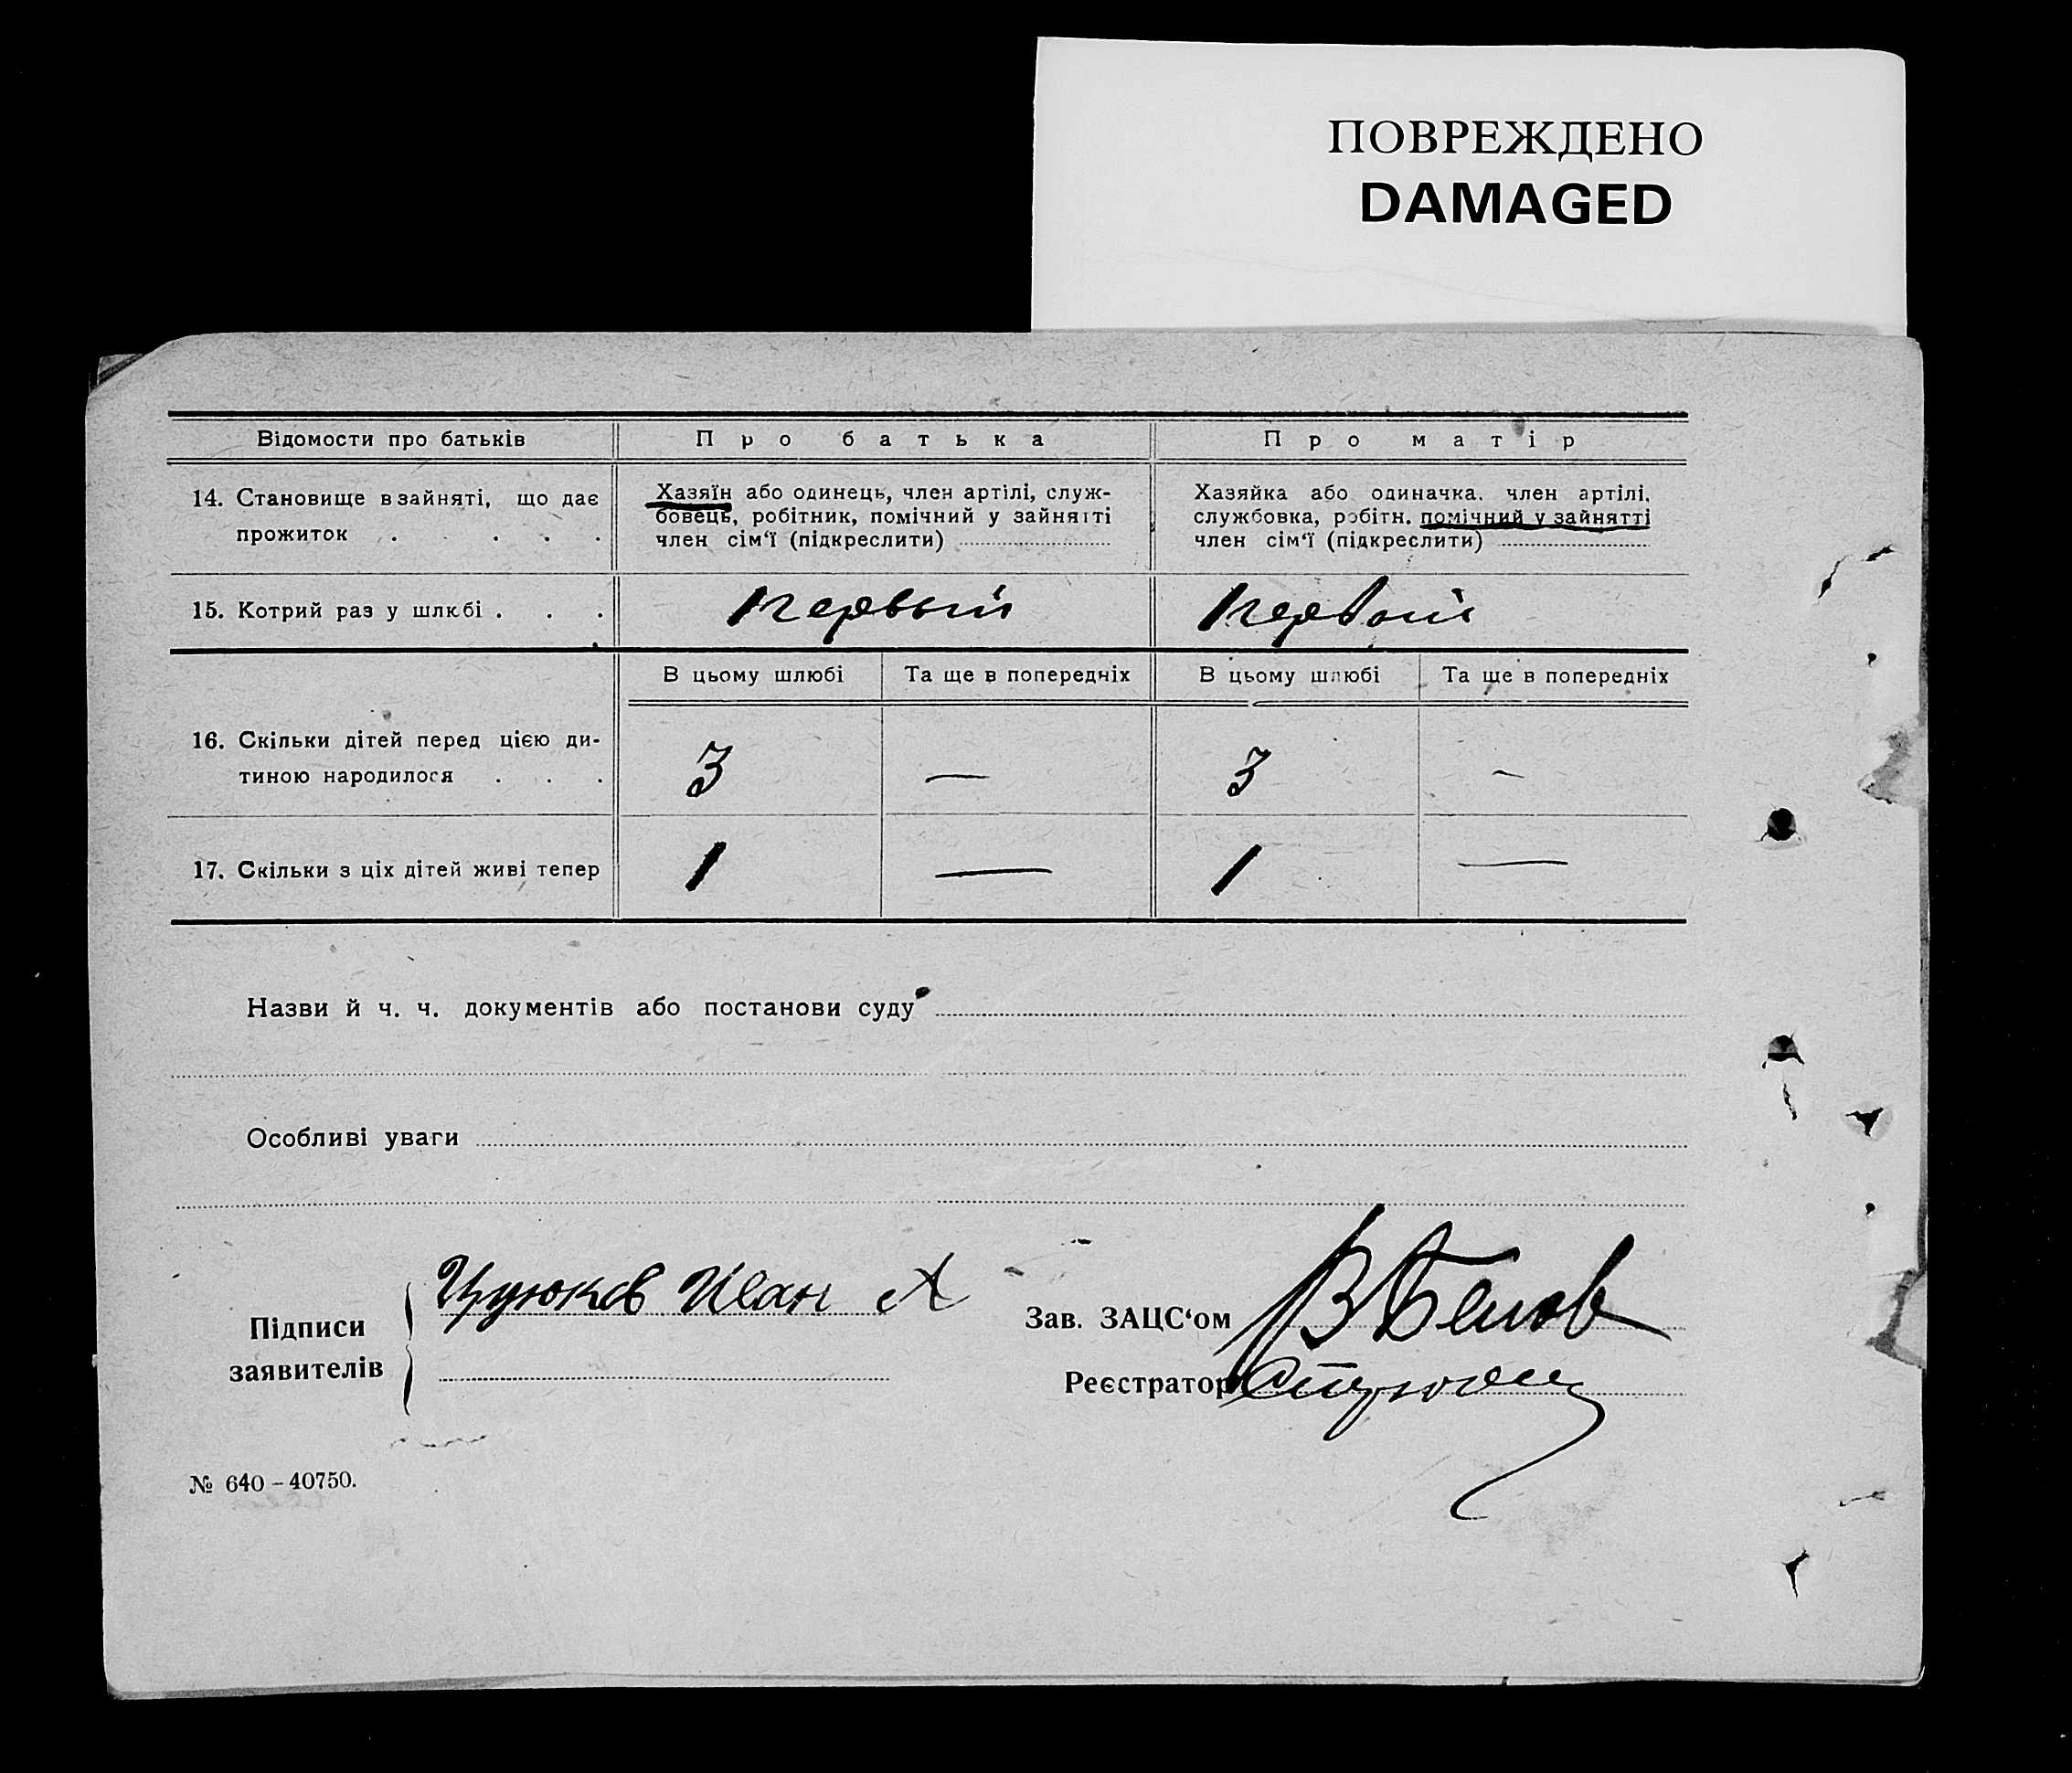 ПОВРЕЖДЕНО
DAMAGED
Відомости про батьків
Про батька
Про матір
14. Становище в зайняті, що дає
прожиток . . . .
Хазяїн або одинець, член артілі, служ-
бовець, робітник, помічний у зайнятті
член сім'ї (підкреслити)
Хазяйка або одиначка, член артілі,
службовка, робітн. помічний у зайнятті
член сім'ї (підкреслити)
15. Котрий раз у шлюбі . . .
первый
первый
В цьому шлюбі
Та ще в попередніх
В цьому шлюбі
Та ще в попередніх
16. Скільки дітей перед цією ди-
тиною народилося . . .
3 — 3 —
17. Скільки з ціх дітей живі тепер
1 — 1 —
Назви й ч. ч. документів або постанови суду
Особливі уваги
Підписи
заявителів
Иван А
Зав. ЗАЦС'ом
В Белов
Реєстратор
№ 640 – 40750.